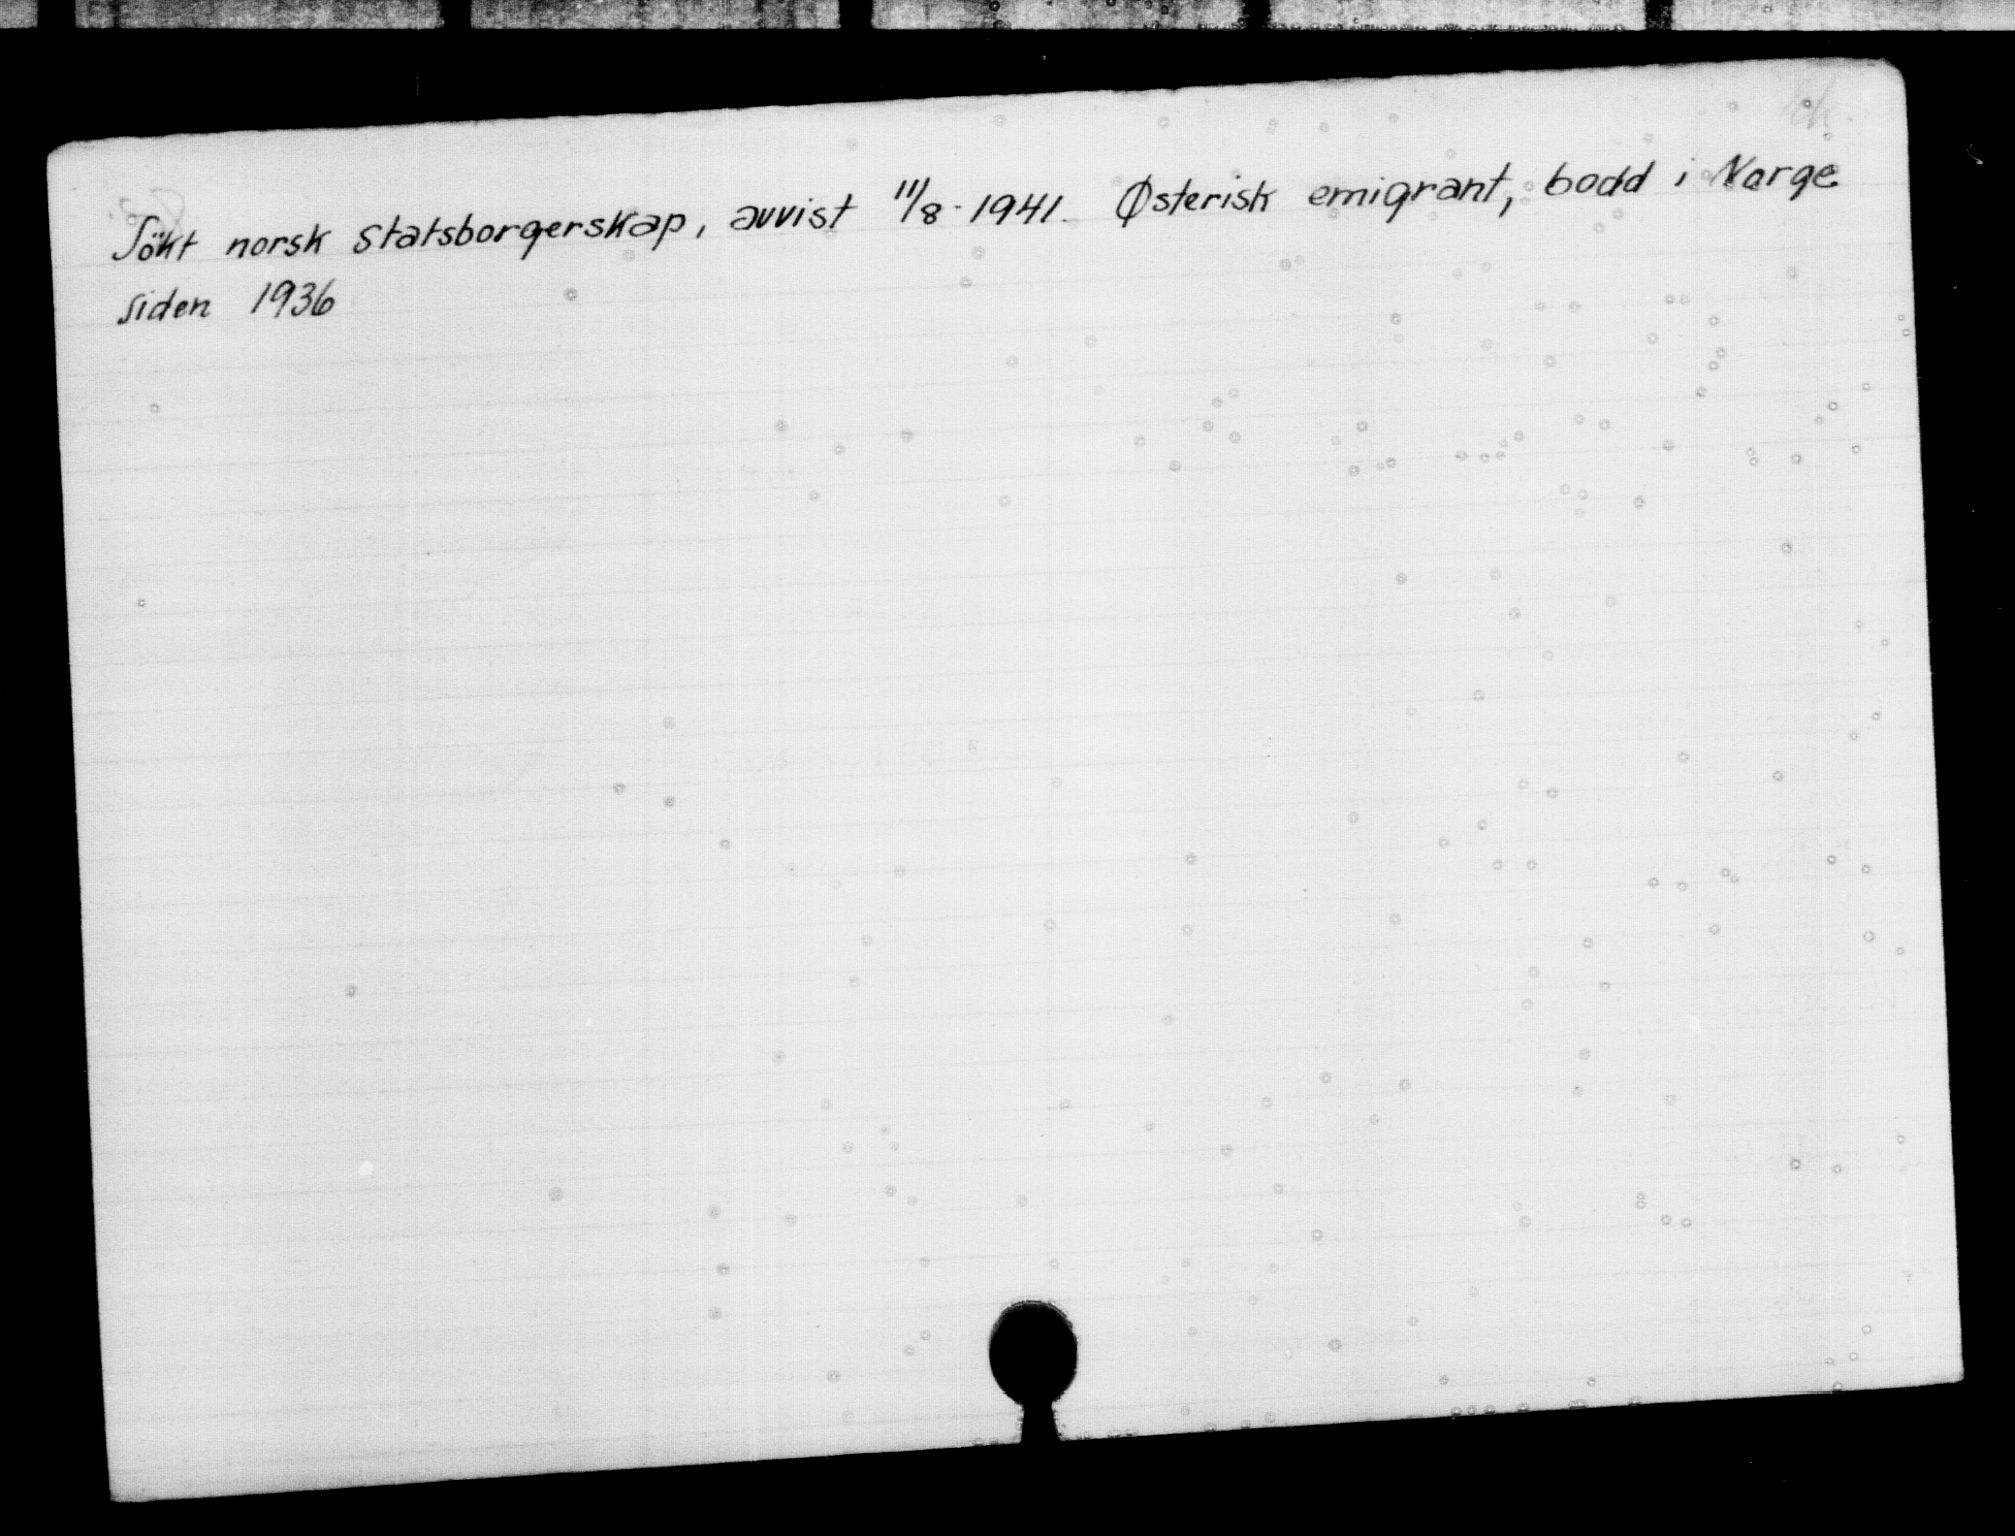 Sökt norsk statsborgerskap, avvist 11/8-1941. Østerisk emigrant, bodd i Norge
siden 1936